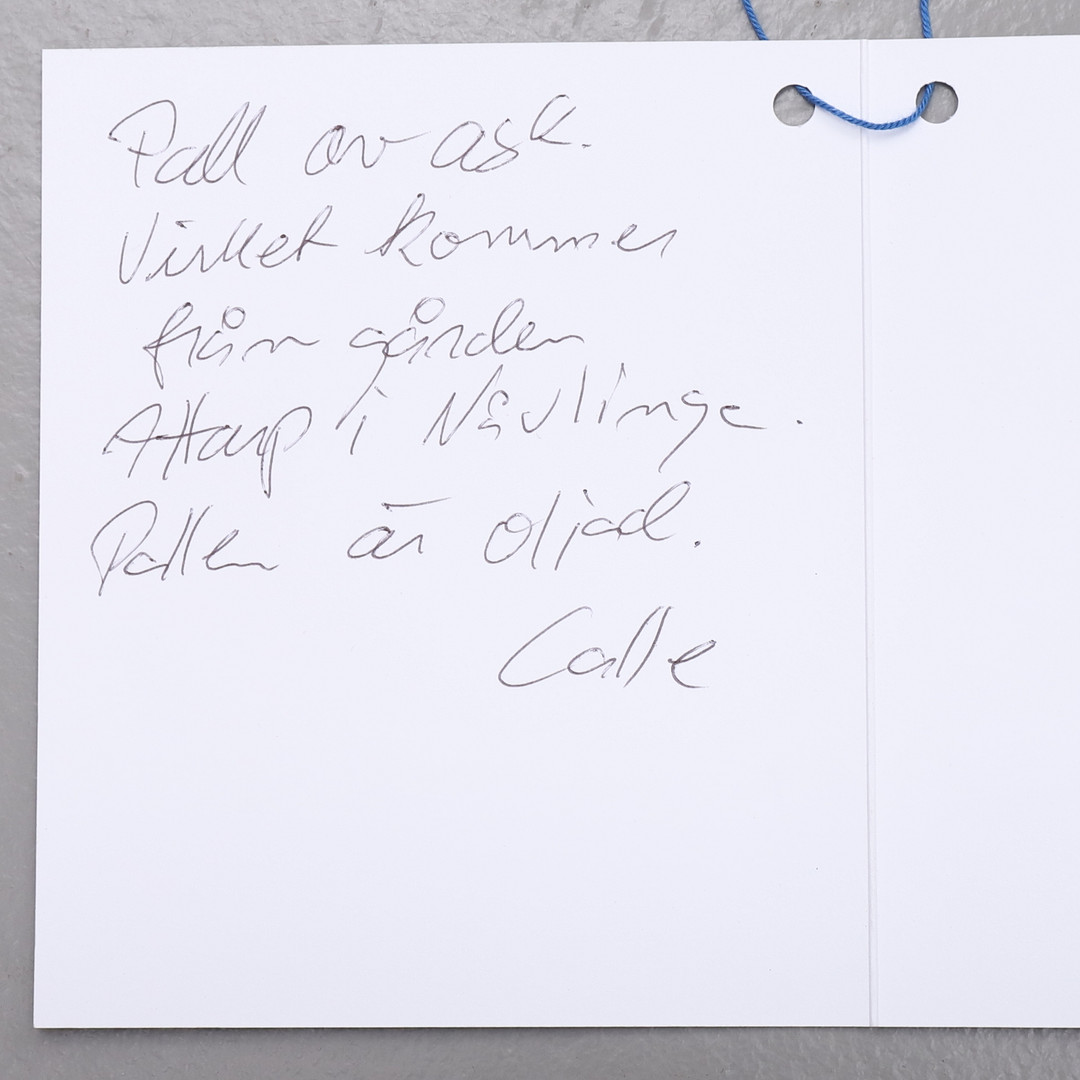 Pall av ask.
Virket kommer
från gården
Attarp i Nävlinge.
Pallen är oljad.
Calle